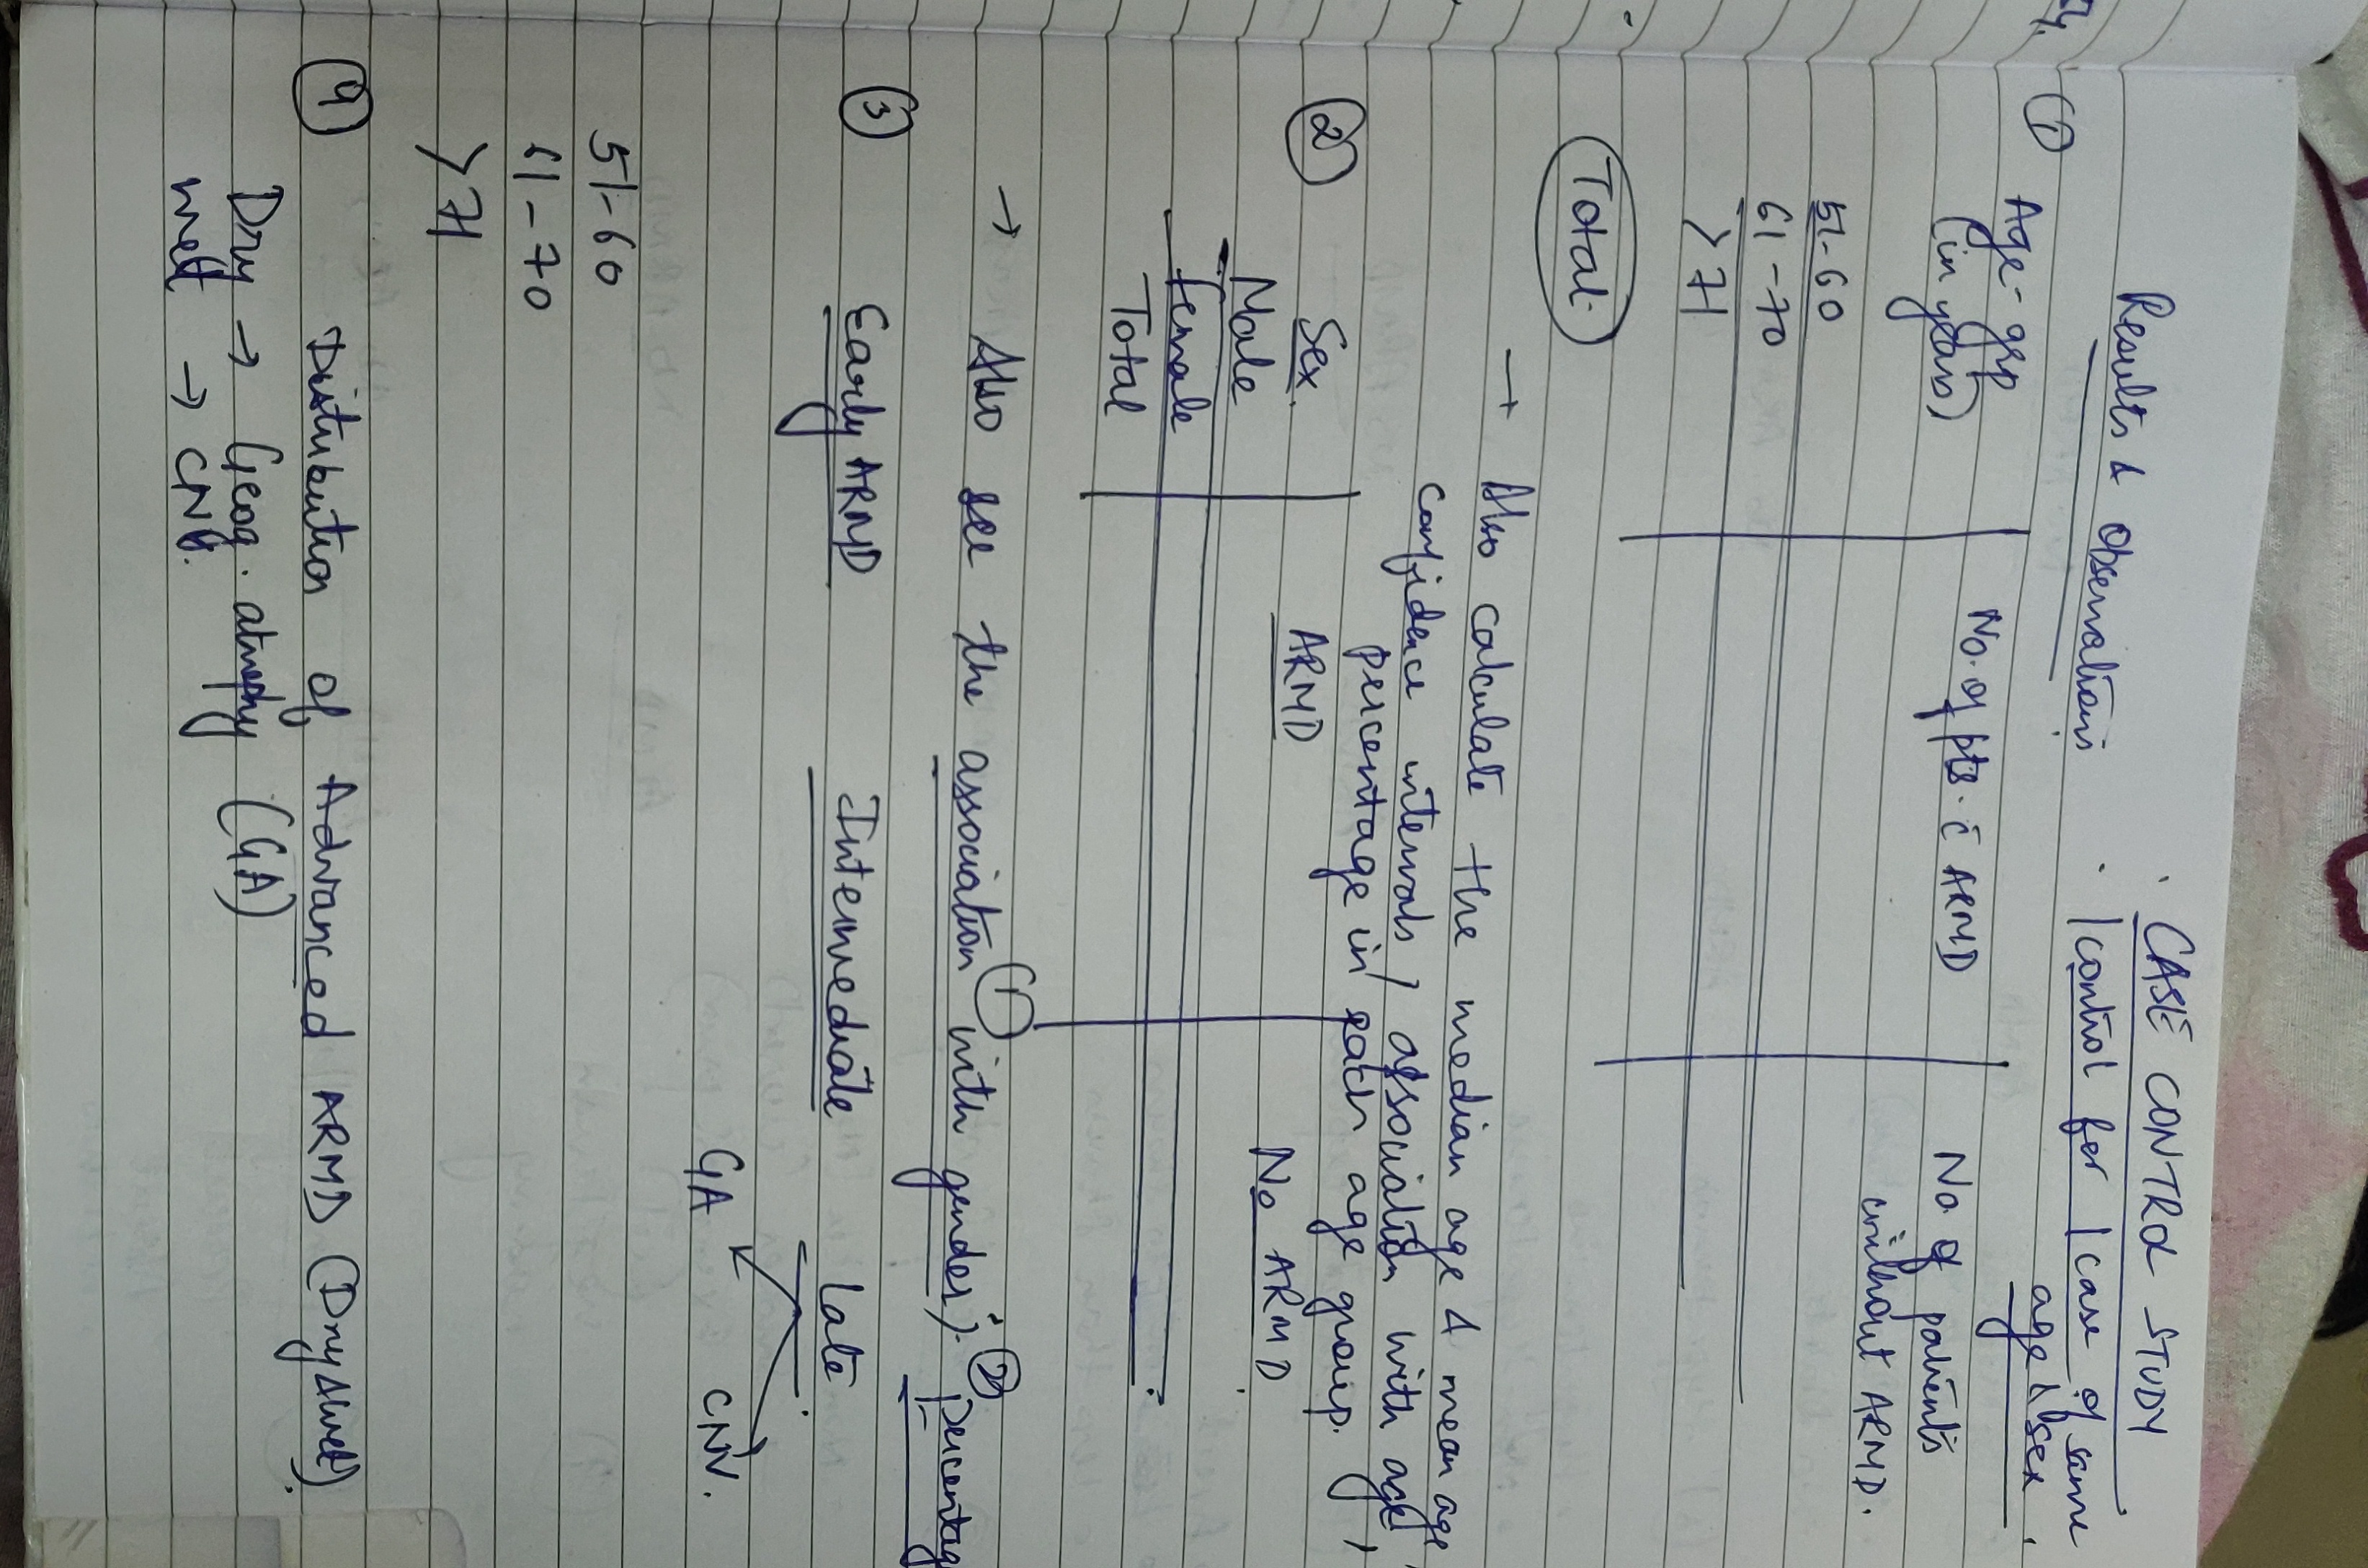 Results & observations.
CASE CONTROL STUDY
1 control for 1 case of same
age & sex.
① Age-grp No. of pts. c̄ ARMD No. of patients
(in years) without ARMD.
51-60
61-70
>71
Total.
→ Also calculate the median age & mean age,
confidence intervals / association with age,
percentage in each age group.
② Sex. ARMD No ARMD.
Male
Female
Total
→ Also see the association ① with gender). ② percentag
③ Early ARMD Intermediate late
GA CNV.
51-60
61-70
>71
④ Distribution of Advanced ARMD (Dry & wet).
Dry → Geog. atrophy (GA)
wet → CNV.